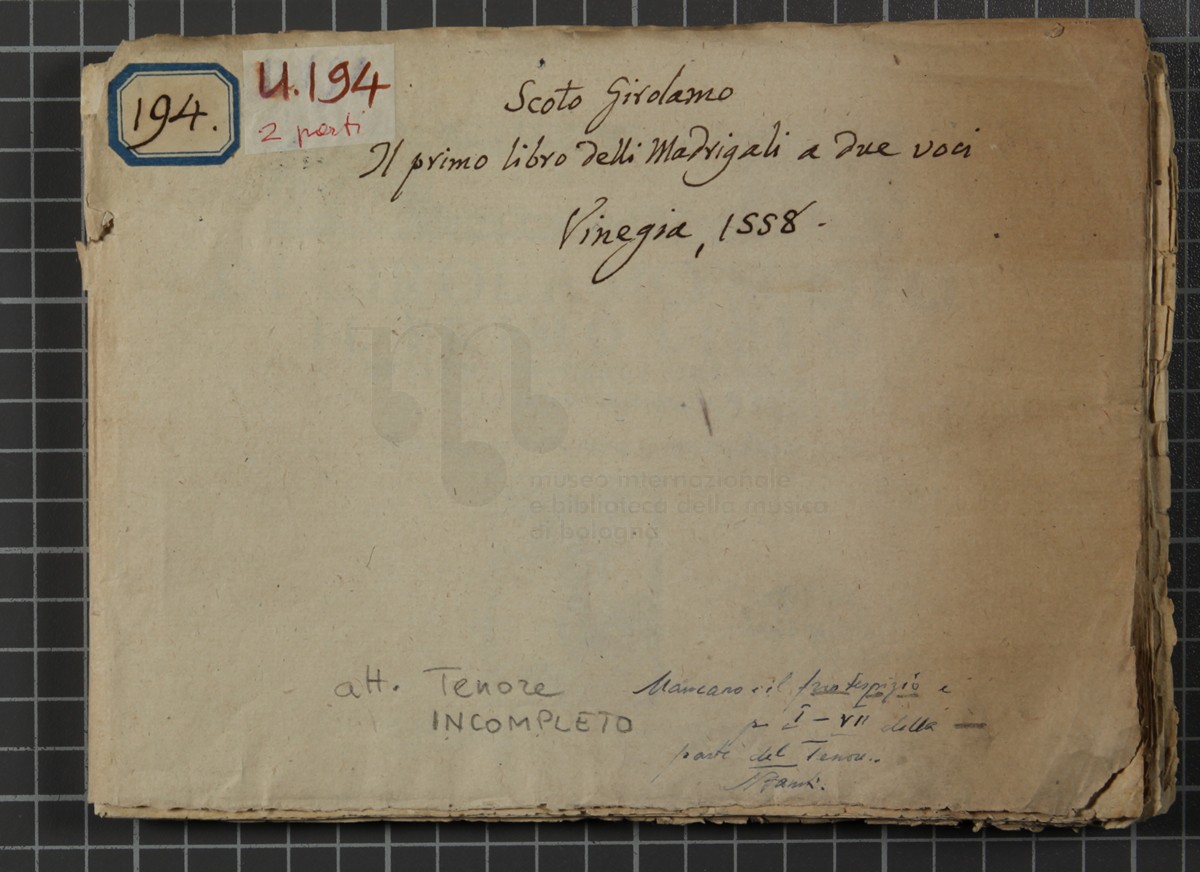 194.
U.194
2 parti
Scoto Girolamo
Il primo libro delli Madrigali a due voci
Vinegia, 1558.
museo internazionale
e biblioteca della musica
di bologna
att. Tenore
INCOMPLETO
Mancano il frontespizio e
p. I - VII della
parte del Tenore.